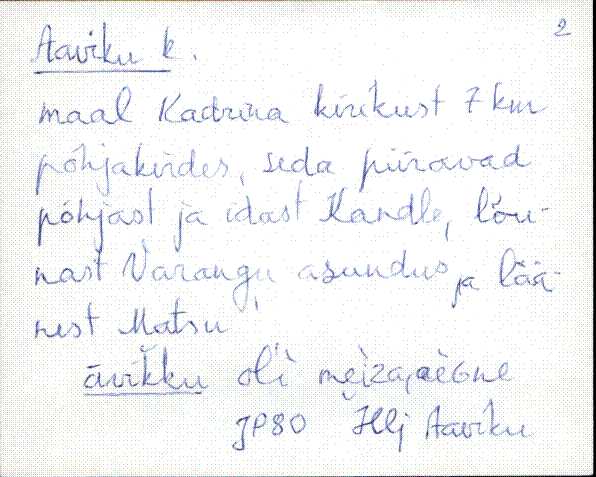 2
Aaviku k.
maal Kadrina kirikust 7 km
põhjakirdes, seda piiravad
põhjast ja idast Kandle, lõu-
nast Varangu asundus ja lää-
nest Matsu
āvikku oli
JP80 Hlj Aaviku